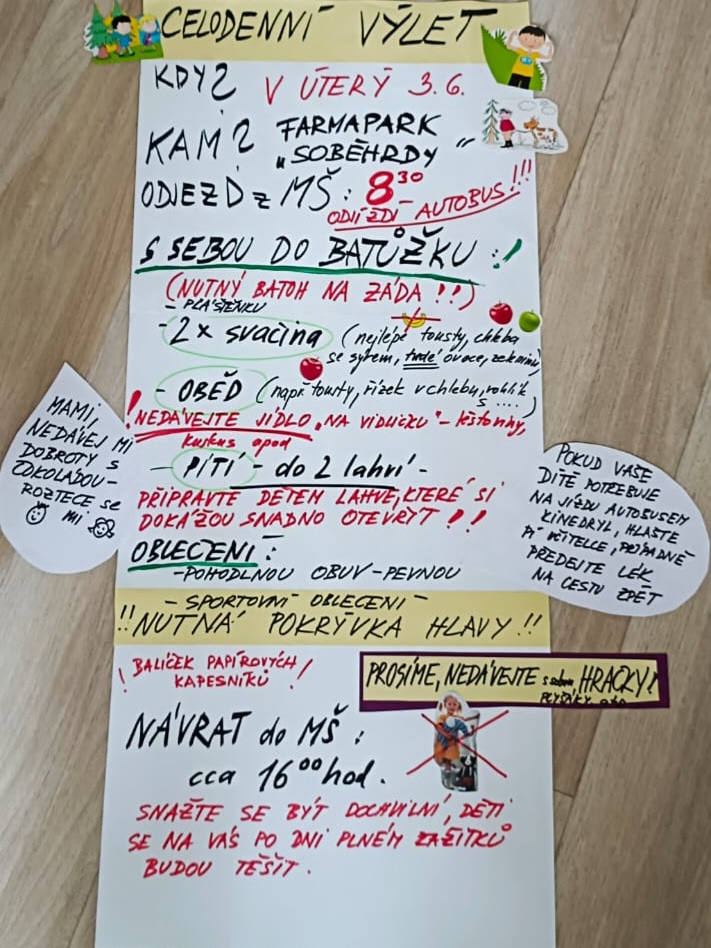 CELODENNÍ VÝLET
KDY? V ÚTERÝ 3.6.
KAM? FARMAPARK
„SOBĚHRDY“
ODJEZD z MŠ: 8³⁰
ODJÍŽDÍ AUTOBUS!!!
S SEBOU DO BATŮŽKU:!
(NUTNÝ BATOH NA ZÁDA!!)
- PLÁŠTĚNKU
- 2x svačina (nejlépe tousty, chleba
se sýrem, tvrdé ovoce, zeleninu)
- OBĚD (např tousty, řízek v chlebu, rohlík
s ....)
! NEDÁVEJTE JÍDLO „NA VIDLIČKU“ - těstoviny,
kuskus apod
- PITÍ - do 2 lahví -
PŘIPRAVTE DĚTEM LAHVE, KTERÉ SI
DOKÁŽOU SNADNO OTEVŘÍT!!
MAMI,
NEDÁVEJ MI
DOBROTY S
ČOKOLÁDOU -
ROZTEČE se
MI
POKUD VAŠE
DÍTĚ POTŘEBUJE
NA JÍZDU AUTOBUSEM
KINEDRYL, HLASTE
PÍ UČITELCE, PŘÍPADNĚ
PŘEDEJTE LÉK
NA CESTU ZPĚT
OBLEČENÍ:
- POHODLNOU OBUV - PEVNOU
- SPORTOVNÍ OBLEČENÍ -
!! NUTNÁ POKRÝVKA HLAVY!!
! BALÍČEK PAPÍROVÝCH
KAPESNÍKŮ !
PROSÍME, NEDÁVEJTE s sebou HRAČKY!
PLYŠÁKY
NÁVRAT do MŠ:
cca 16⁰⁰ hod.
SNAŽTE SE BÝT DOCHVILNÍ, DĚTI
SE NA VÁS PO DNI PLNÉM ZÁŽITKŮ
BUDOU TĚŠIT.